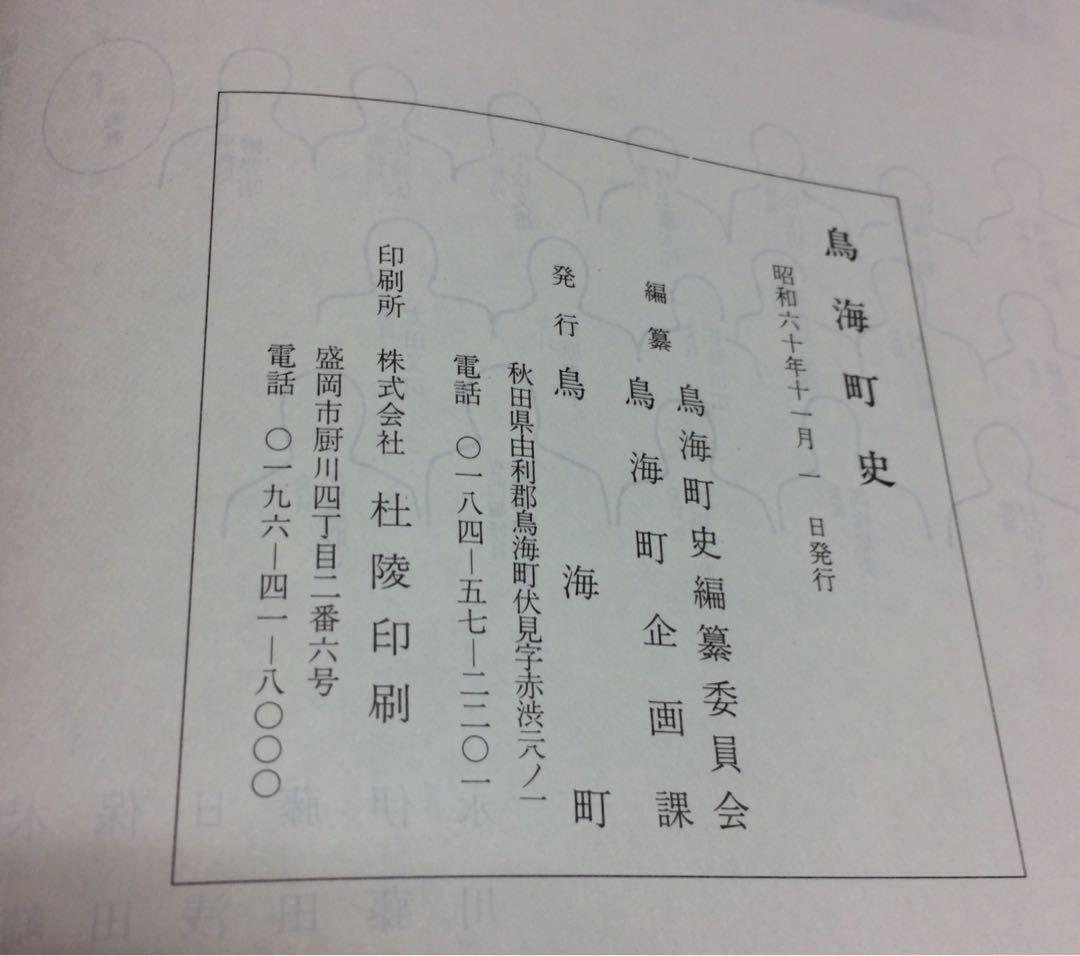 鳥海町史
昭和六十年十一月一日発行
編纂 鳥海町史編纂委員会
鳥海町企画課
発行 鳥海町
秋田県由利郡鳥海町伏見字赤渋二八ノ一
電話 〇一八四―五七―二二〇一
印刷所 株式会社 杜陵印刷
盛岡市厨川四丁目二番六号
電話 〇一九六―四一―八〇〇〇